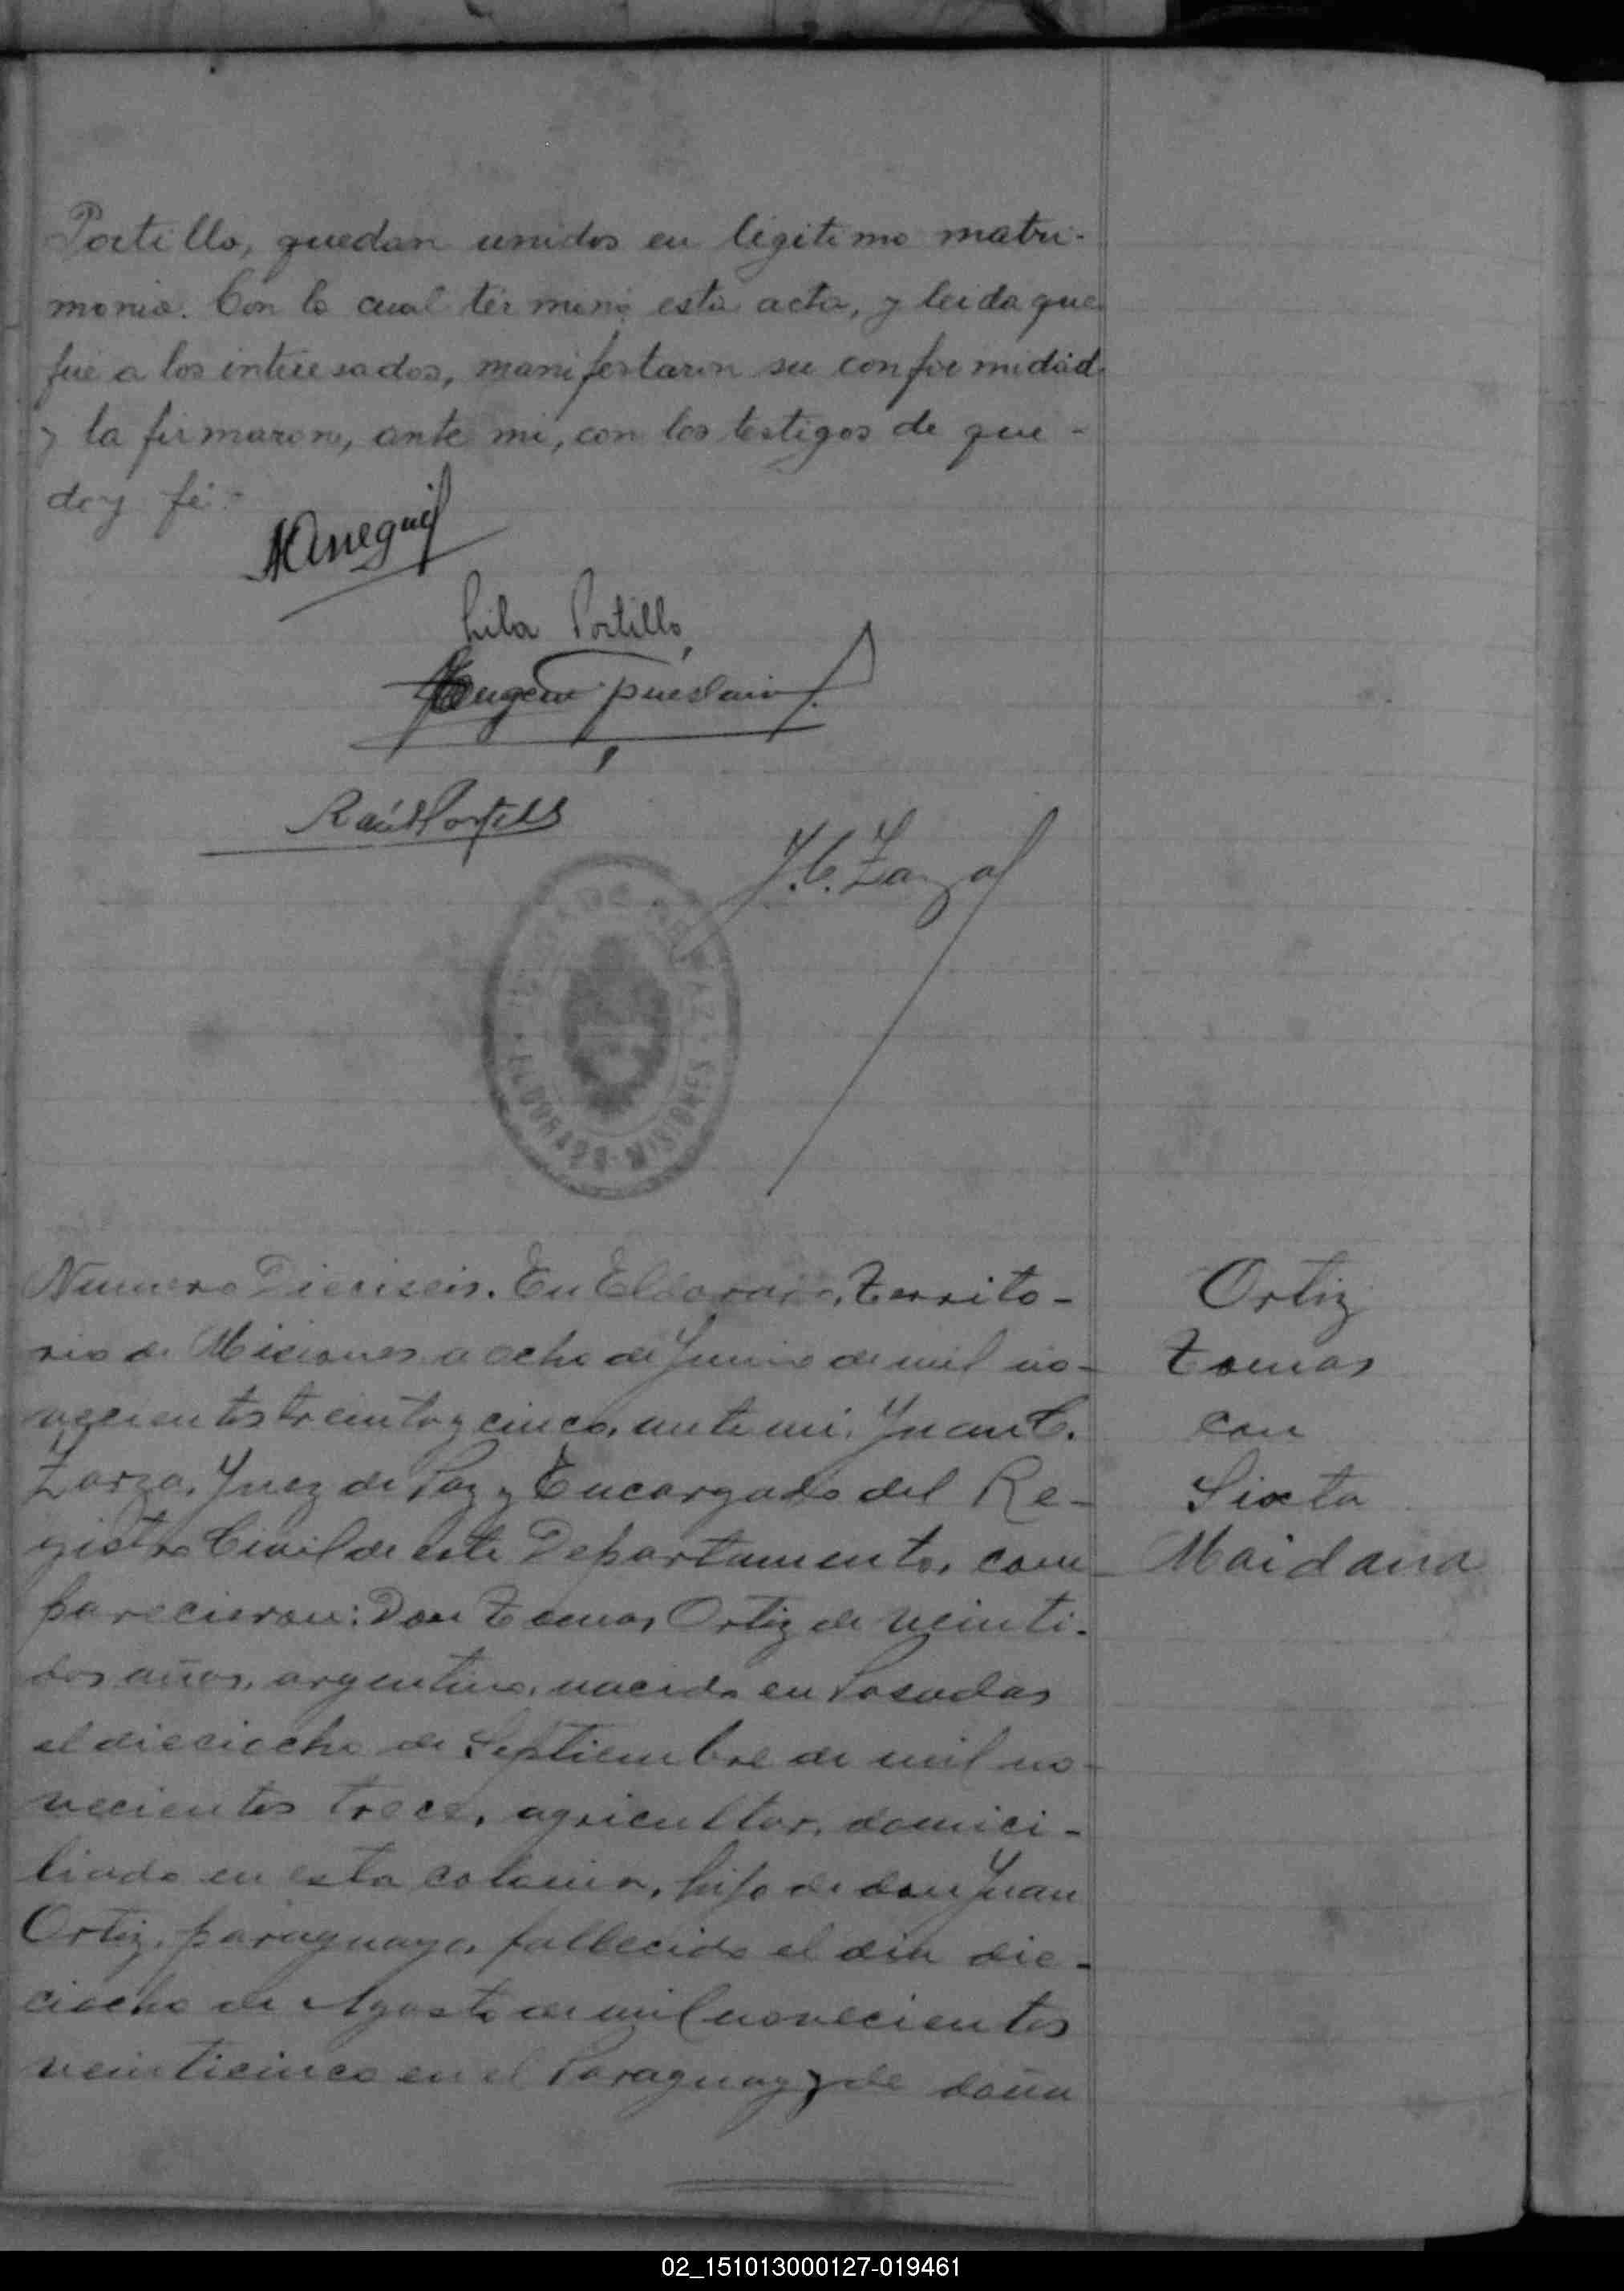 Portillo, quedan unidos en legitimo matri-
monio. Con lo cual terminó esta acta, y leida que
fué a los interesados, manifestaron su conformidad
y la firmaron, ante mi, con los testigos de que -
doy fé.-
Lila Portillo
Raúl Portillo
J. C. Zarza
JUZGADO DE PAZ
ELDORADO - MISIONES
Numero Dieciseis. En Eldorado, Territo-
rio de Misiones a ocho de Junio de mil no-
vecientos treinta y cinco, ante mi, Juan C.
Zarza, Juez de Paz y Encargado del Re-
gistro Civil de este Departamento, com-
parecieron: Don Tomas Ortiz de veinti-
dos años, argentino, nacido en Posadas
el dieciocho de Septiembre de mil no-
vecientos trece, agricultor, domici-
liado en esta colonia, hijo de don Juan
Ortiz, paraguayo, fallecido el dia die-
ciocho de Agosto de mil novecientos
veinticinco en el Paraguay y de doña
Ortiz
Tomas
con
Sixta
Maidana
02_151013000127-019461